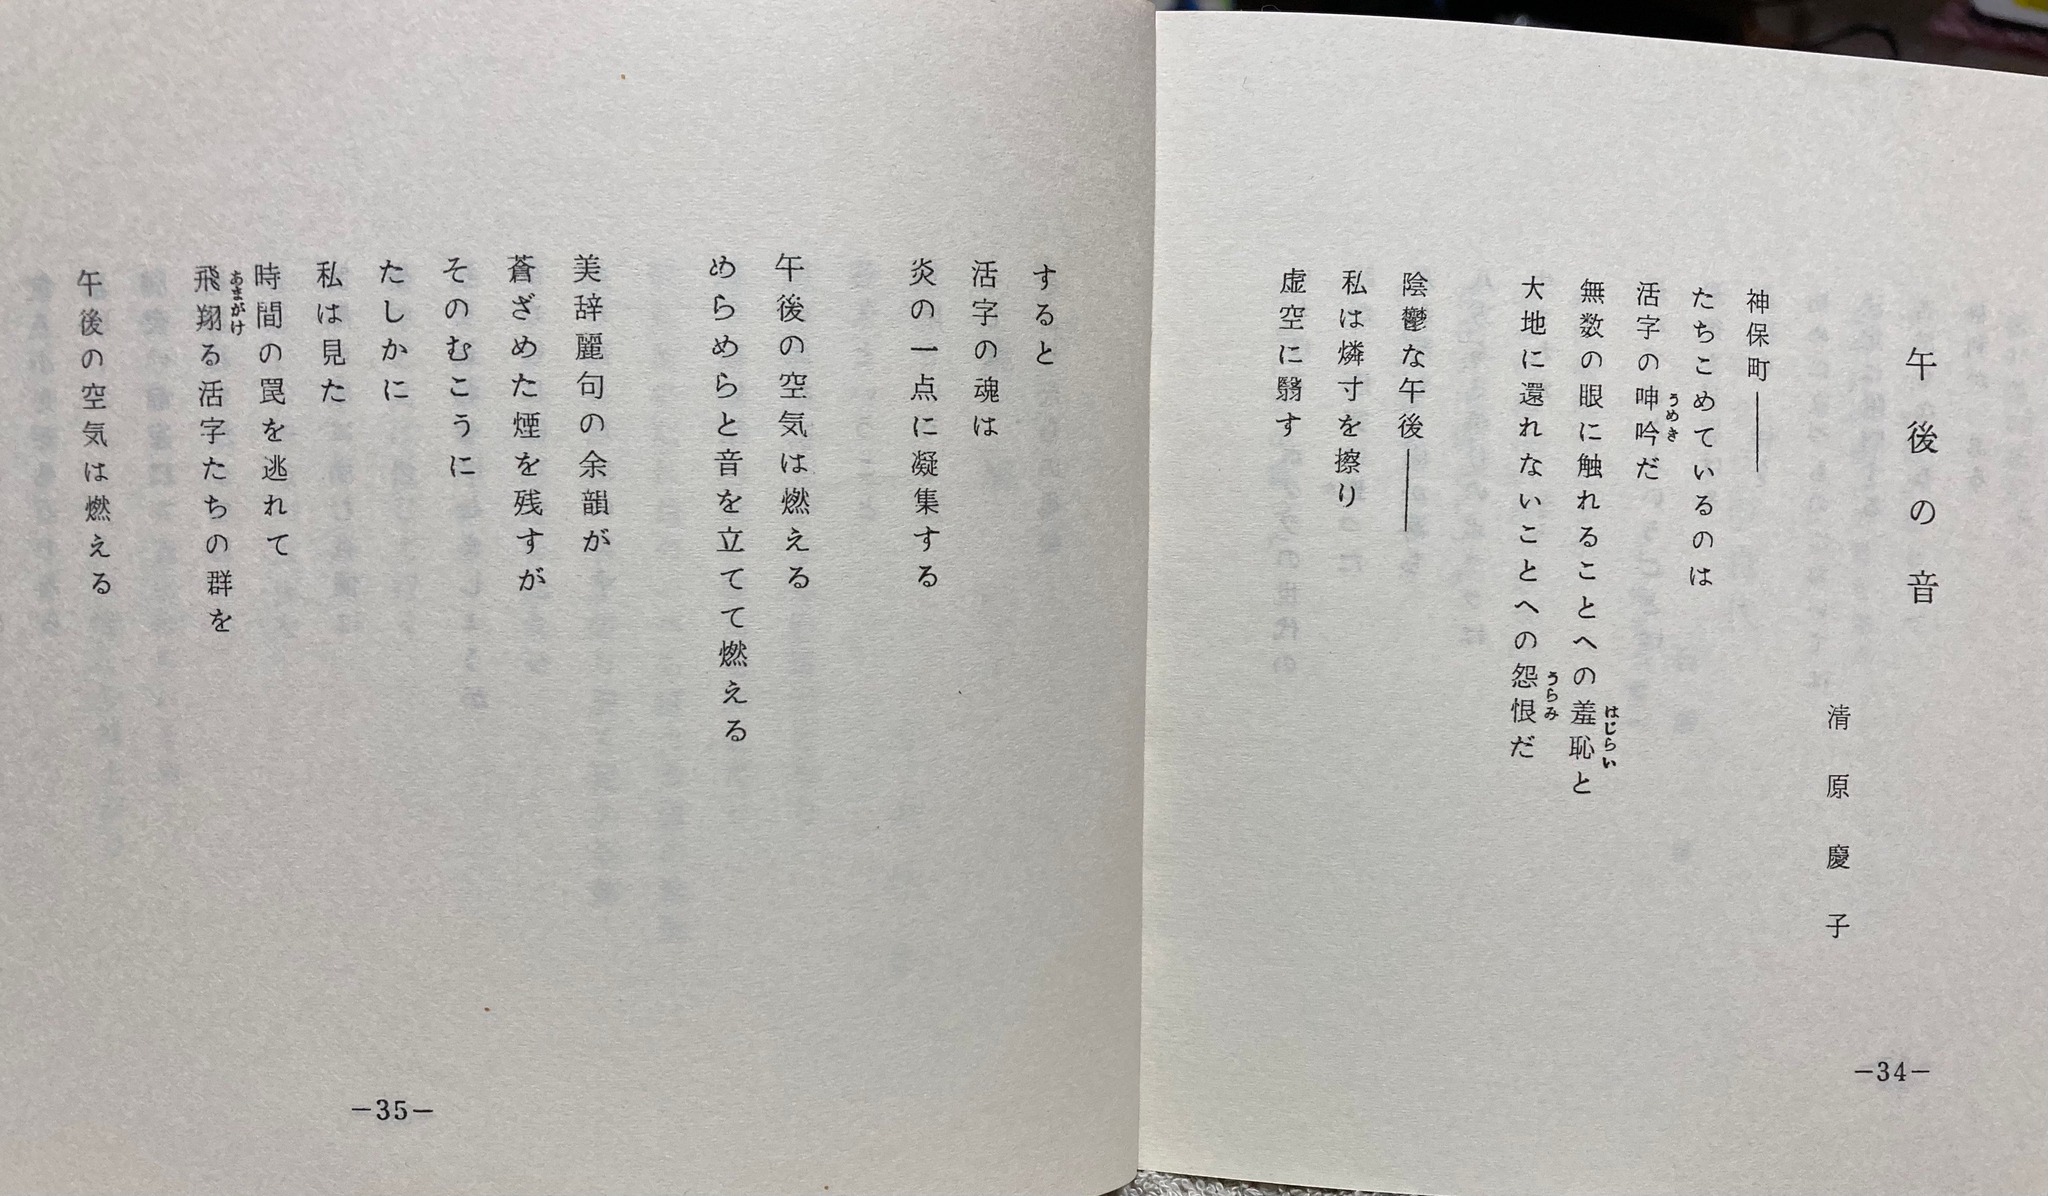 午後の音
清原慶子
神保町――
たちこめているのは
活字の呻吟だ
うめき
無数の眼に触れることへの羞恥と
はじらい
大地に還れないことへの怨恨だ
うらみ
陰鬱な午後――
私は燐寸を擦り
虚空に翳す
―34―
すると
活字の魂は
炎の一点に凝集する
午後の空気は燃える
めらめらと音を立てて燃える
美辞麗句の余韻が
蒼ざめた煙を残すが
そのむこうに
たしかに
私は見た
時間の罠を逃れて
飛翔る活字たちの群を
あまがけ
午後の空気は燃える
―35―